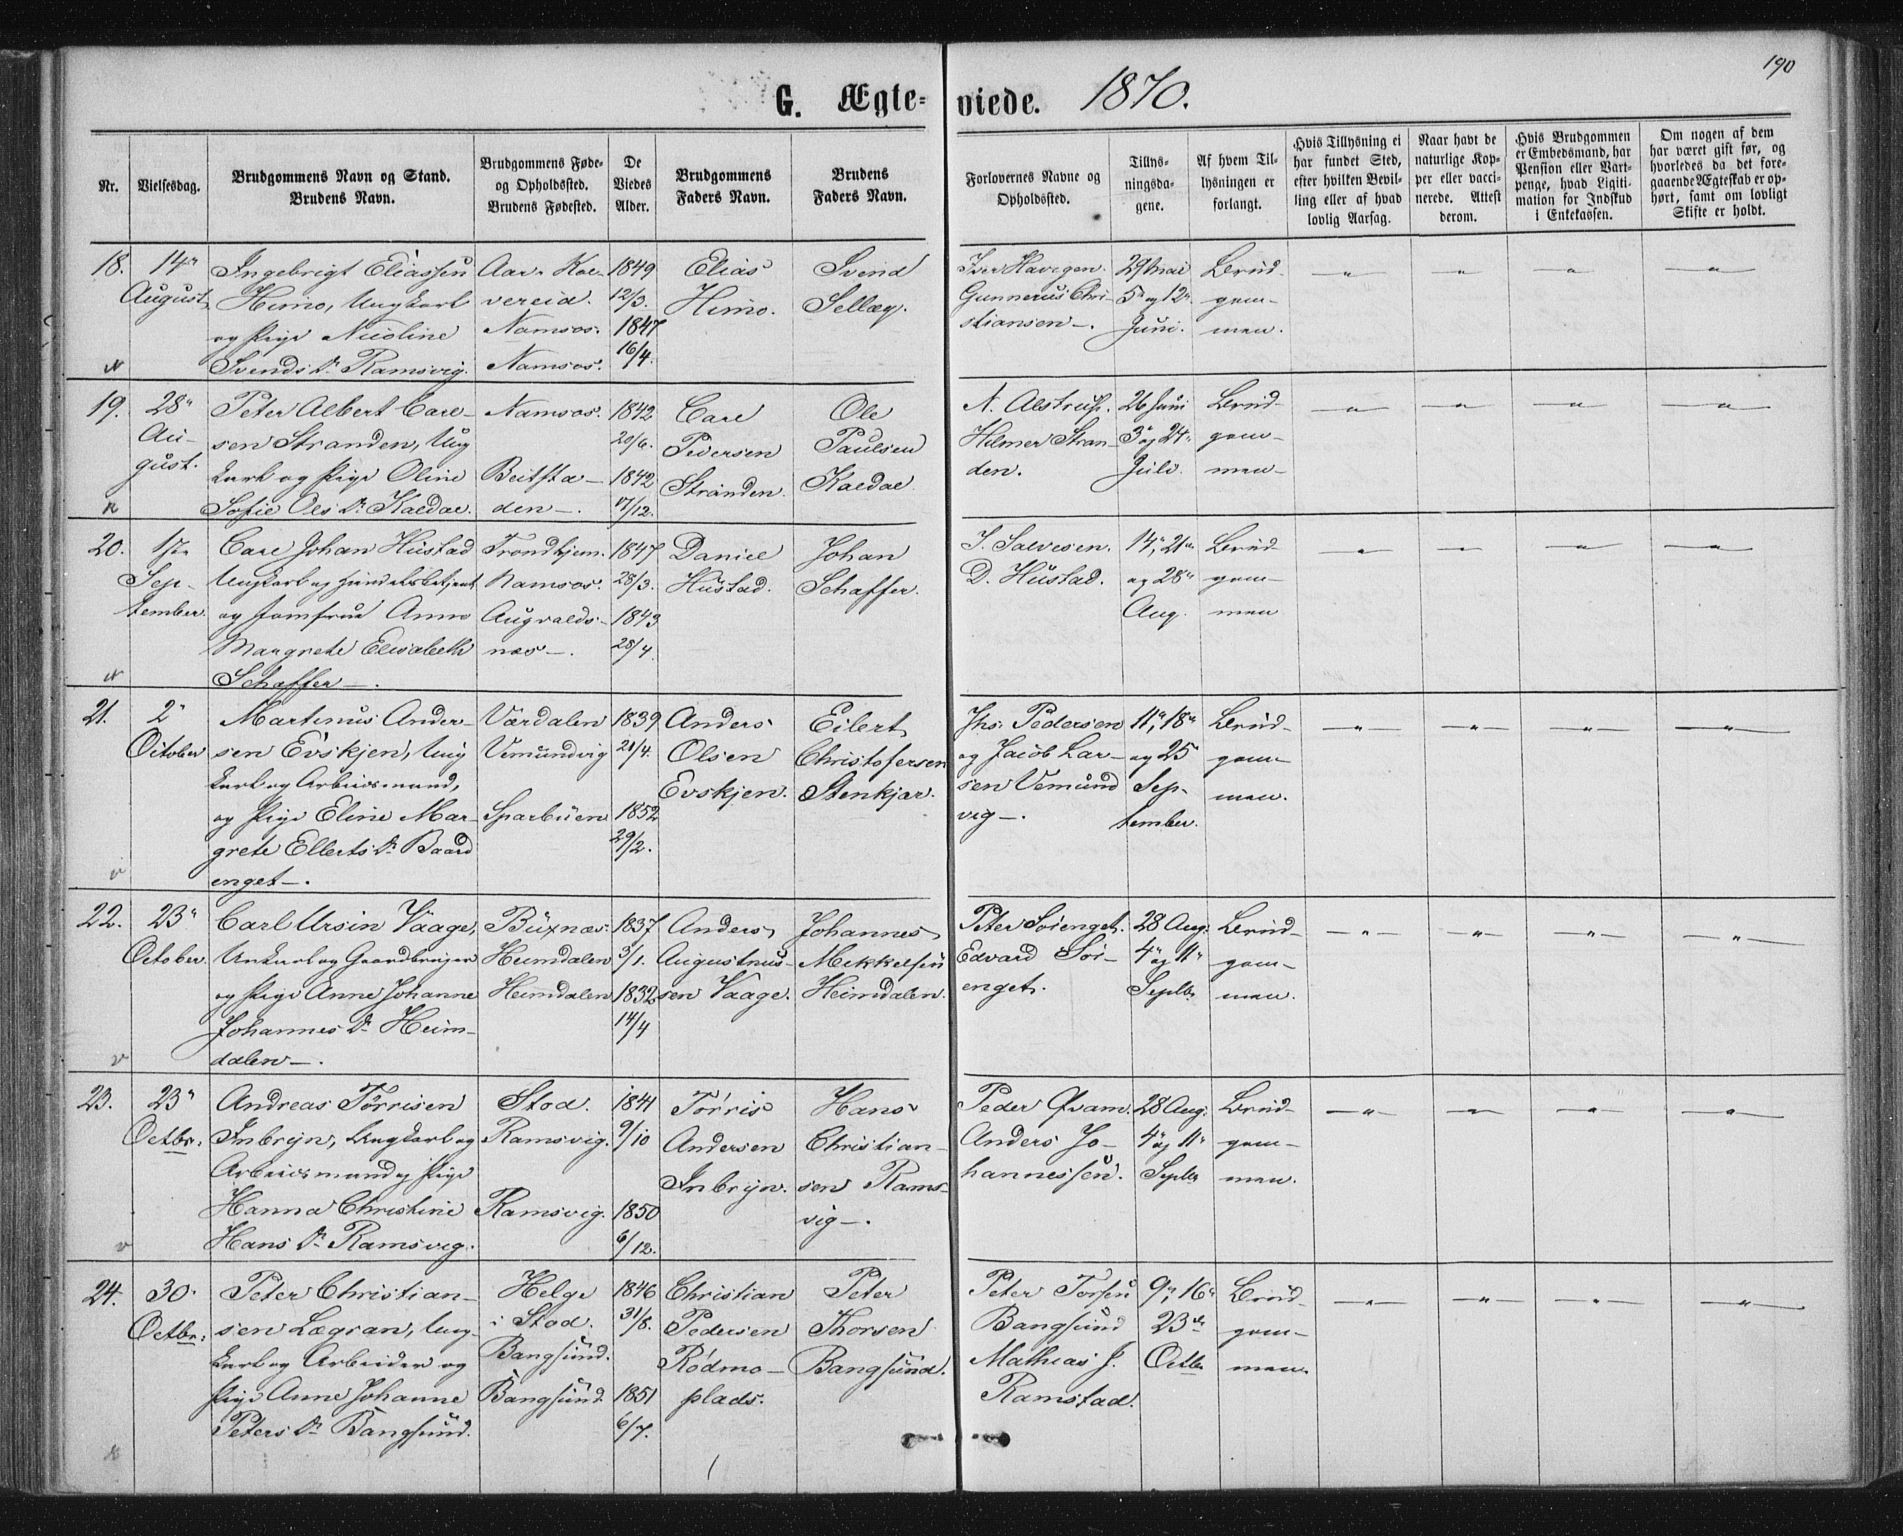 190
G. Ægte-viede. 1870.
Nr.
Vielsesdag.
Brudgommens Navn og Stand.
Brudens Navn.
Brudgommens Føde-
og Opholdssted.
Brudens Fødested.
De
Viedes
Alder.
Brudgommens
Faders Navn.
Brudens
Faders Navn.
Forlovernes Navne og
Opholdssted.
Tillys-
ningsda-
gene.
Af hvem Til-
lysningen er
forlangt.
Hvis Tillysning ei
har fundet Sted,
efter hvilken Bevil-
ling eller af hvad
lovlig Aarsag.
Naar havt de
naturlige Kop-
per eller vacci-
nerede. Attest
derom.
Hvis Brudgommen
er Embedsmand, har
Pension eller Vart-
penge, hvad Ligiti-
mation for Indskud
i Enkekassen.
Om nogen af dem
har været gift før, og
hvorledes da det fore-
gaaende Ægteskab er op-
hørt, samt om lovligt
Skifte er holdt.
18.
14"
August
Ingebrigt Eliassen
Himo, Ungkarl
og Pige Nicoline
Svends Dr Ramsvig.
vereid.
Namsos.
Namsos.
1849
12/3.
1847
16/4.
Elias
Himo.
Svend
Sellæg.
Iver Havigen.
Gunnerus Chri-
stiansen-.
29 Mai
5" og 12"
Juni.
Brud-
gom-
men.
19.
28"
Au-
gust.
Peter Albert Carl-
sen Stranden, Ung
karl og Pige Oline
Sofie Ols Dr Kaldal.
Namsos.
Beitsta-
den-.
1842
20/6.
1842
17/12.
Carl
Pedersen
Stranden.
Ole
Paulsen
Kaldal
N. Alstrup.
Hilmer Stran-
den.
26 Juni
3" og 24"
Juli.
Brud-
gom-
men-
20.
Sep-
tember.
Carl Johan Hustad
Ungkarl og Handelsbetjent
og Jomfrue Anna
Margrete Elisabeth
Schaffer-.
Trondhjem.
Namsos.
Augvalds-
næs-.
1847
28/3.
1843
28/4.
Daniel
Hustad.
Johan
Schaffer.
I. Salvesen.
D. Hustad.
14", 21"
og 28"
Aug.
Brud-
gom-
men
21.
2"
October
Martinus Ander-
sen Evskjen, Ung
karl og Arbeidsmand,
og Pige Eline Mar-
grete Ellerts Dr Baard
enget-.
Værdalen
Vemundvig
Sparbuen
1839
21/4.
1852
29/2.
Anders
Olsen
Evskjen.
Eilert
Christofersen
Stenkjær.
Jhs. Pedersen
og Jacob Lar-
sen Vemund
vig-.
11", 18"
og 25
Sep-
tember.
Brud-
gom-
men.
22.
23"
October.
Carl Ursin Vaage,
Unkarl og Gaardbruger
og Pige Anne Johanne
Johannes Dr Heim-
dalen-.
Buxnæs.
Heimdalen
Heimdalen
1837
3/1.
1832
14/4
Anders
Augustinus-
sen Vaage.
Johannes
Mikkelsen
Heimdalen.
Peter Soienget.
Edvard Søi-
enget.
28 Aug.
4" og 11"
Septbr
Brud-
gom-
men.
23.
23"
Octbr.
Andreas Tørrisen
Inbryn, Ungkarl og
Arbeidsmand og Pige
Hanna Christine
Hans Dr Ramsvig.
Stod.
Ramsvig.
Ramsvig.
1841
9/10
1850
6/12.
Tørris
Andersen
Inbryn.
Hans
Christian-
sen Rams-
vig-.
Peder Qvam.
Anders Jo-
hannessen.
28 Aug.
4" og 11"
Septbr
Brud-
gom-
men.
24.
30.
Octbr.
Peter Christian-
sen Lægran, Ung-
karl og Arbeider og
Pige Anne Johanne
Peters Dr Bangsund.
Helge
i Stod.
Bangsund.
Bangsund.
1846
31/8.
1851
6/7.
Christian
Pedersen
Rødmo-
plads.
Peter
Thorsen
Bangsund.
Peter Torsen
Bangsund
Mathias J.
Ramstad.
9", 16"
23de
Octbr
Brud-
gom-
men